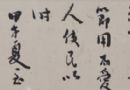 節用而愛
人使民以
時
甲午夏